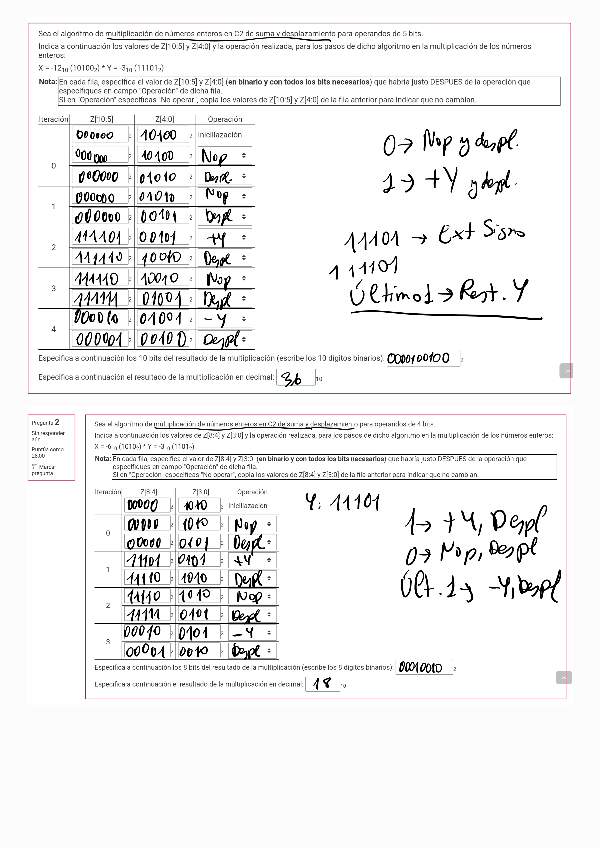 Sea el algoritmo de multiplicación de números enteros en C2 de suma y desplazamiento para operandos de 5 bits.
Indica a continuación los valores de Z[10:5] y Z[4:0] y la operación realizada, para los pasos de dicho algoritmo en la multiplicación de los números
enteros:
X = -12₁₀ (10100₂) * Y = -3₁₀ (11101₂)
Nota: En cada fila, especifica el valor de Z[10:5] y Z[4:0] (en binario y con todos los bits necesarios) que habría justo DESPUES de la operación que
especifiques en campo "Operación" de dicha fila.
Si en "Operación" especificas "No operar", copia los valores de Z[10:5] y Z[4:0] de la fila anterior para indicar que no cambian.
Iteración Z[10:5] Z[4:0] Operación
000000 2 10100 2 Inicilización
0 000000 2 10100 2 Nop
000000 2 01010 2 Despl
1 000000 2 01010 2 Nop
000000 2 00101 2 Despl
2 111101 2 00101 2 +Y
111110 2 10010 2 Despl
3 111110 2 10010 2 Nop
111111 2 01001 2 Despl
4 000010 2 01001 2 -Y
000001 2 00100 2 Despl
0 → Nop y despl.
1 → +Y y despl.
11101 → Ext Signo
111101
Último 1 → Rest. Y
Especifica a continuación los 10 bits del resultado de la multiplicación (escribe los 10 dígitos binarios): 0000100100 2
Especifica a continuación el resultado de la multiplicación en decimal: 36 10
Pregunta 2
Sin responder
aún
Puntúa como
25,00
Marcar
pregunta
Sea el algoritmo de multiplicación de números enteros en C2 de suma y desplazamiento para operandos de 4 bits.
Indica a continuación los valores de Z[8:4] y Z[3:0] y la operación realizada, para los pasos de dicho algoritmo en la multiplicación de los números enteros:
X = -6₁₀ (1010₂) * Y = -3₁₀ (1101₂)
Nota: En cada fila, especifica el valor de Z[8:4] y Z[3:0] (en binario y con todos los bits necesarios) que habría justo DESPUES de la operación que
especifiques en campo "Operación" de dicha fila.
Si en "Operación" especificas "No operar", copia los valores de Z[8:4] y Z[3:0] de la fila anterior para indicar que no cambian.
Iteración Z[8:4] Z[3:0] Operación
00000 2 1010 2 Inicilización
0 00000 2 1010 2 Nop
00000 2 0101 2 Despl
1 11101 2 0101 2 +Y
11110 2 1010 2 Despl
2 11110 2 1010 2 Nop
11111 2 0101 2 Despl
3 00010 2 0101 2 -Y
00001 2 0010 2 Despl
Y: 11101
1 → +Y, Despl
0 → Nop, Despl
Últ. 1 → -Y, Despl
Especifica a continuación los 8 bits del resultado de la multiplicación (escribe los 8 dígitos binarios): 00010010 2
Especifica a continuación el resultado de la multiplicación en decimal: 18 10